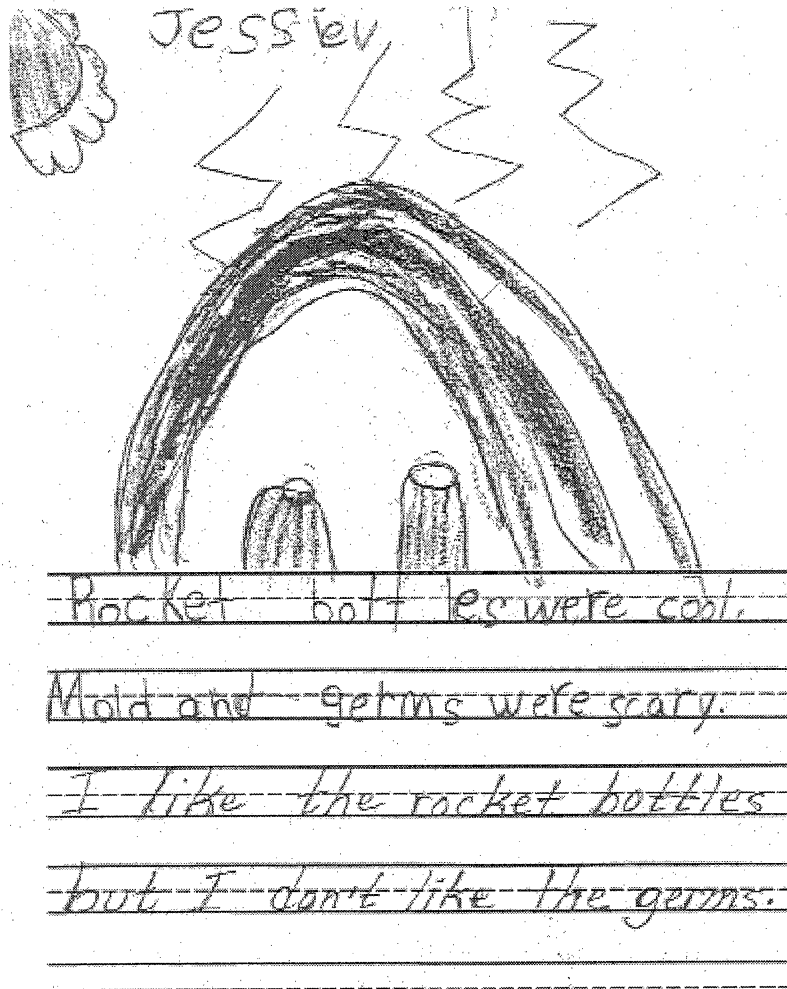 Jessiev
Rocket bottles were cool.
Mold and germs were scary.
I like the rocket bottles
but I don't like the germs.